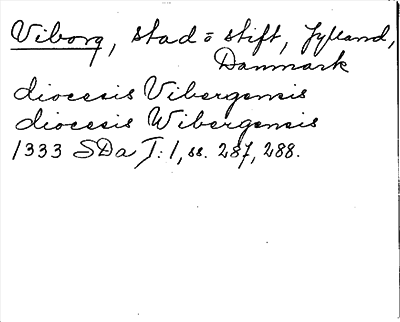 Viborg, stad o stift, Jylland,
Danmark
diocesis Vibergensis
diocesis Wibergensis
1333 SDa I: 1, ss. 287, 288.